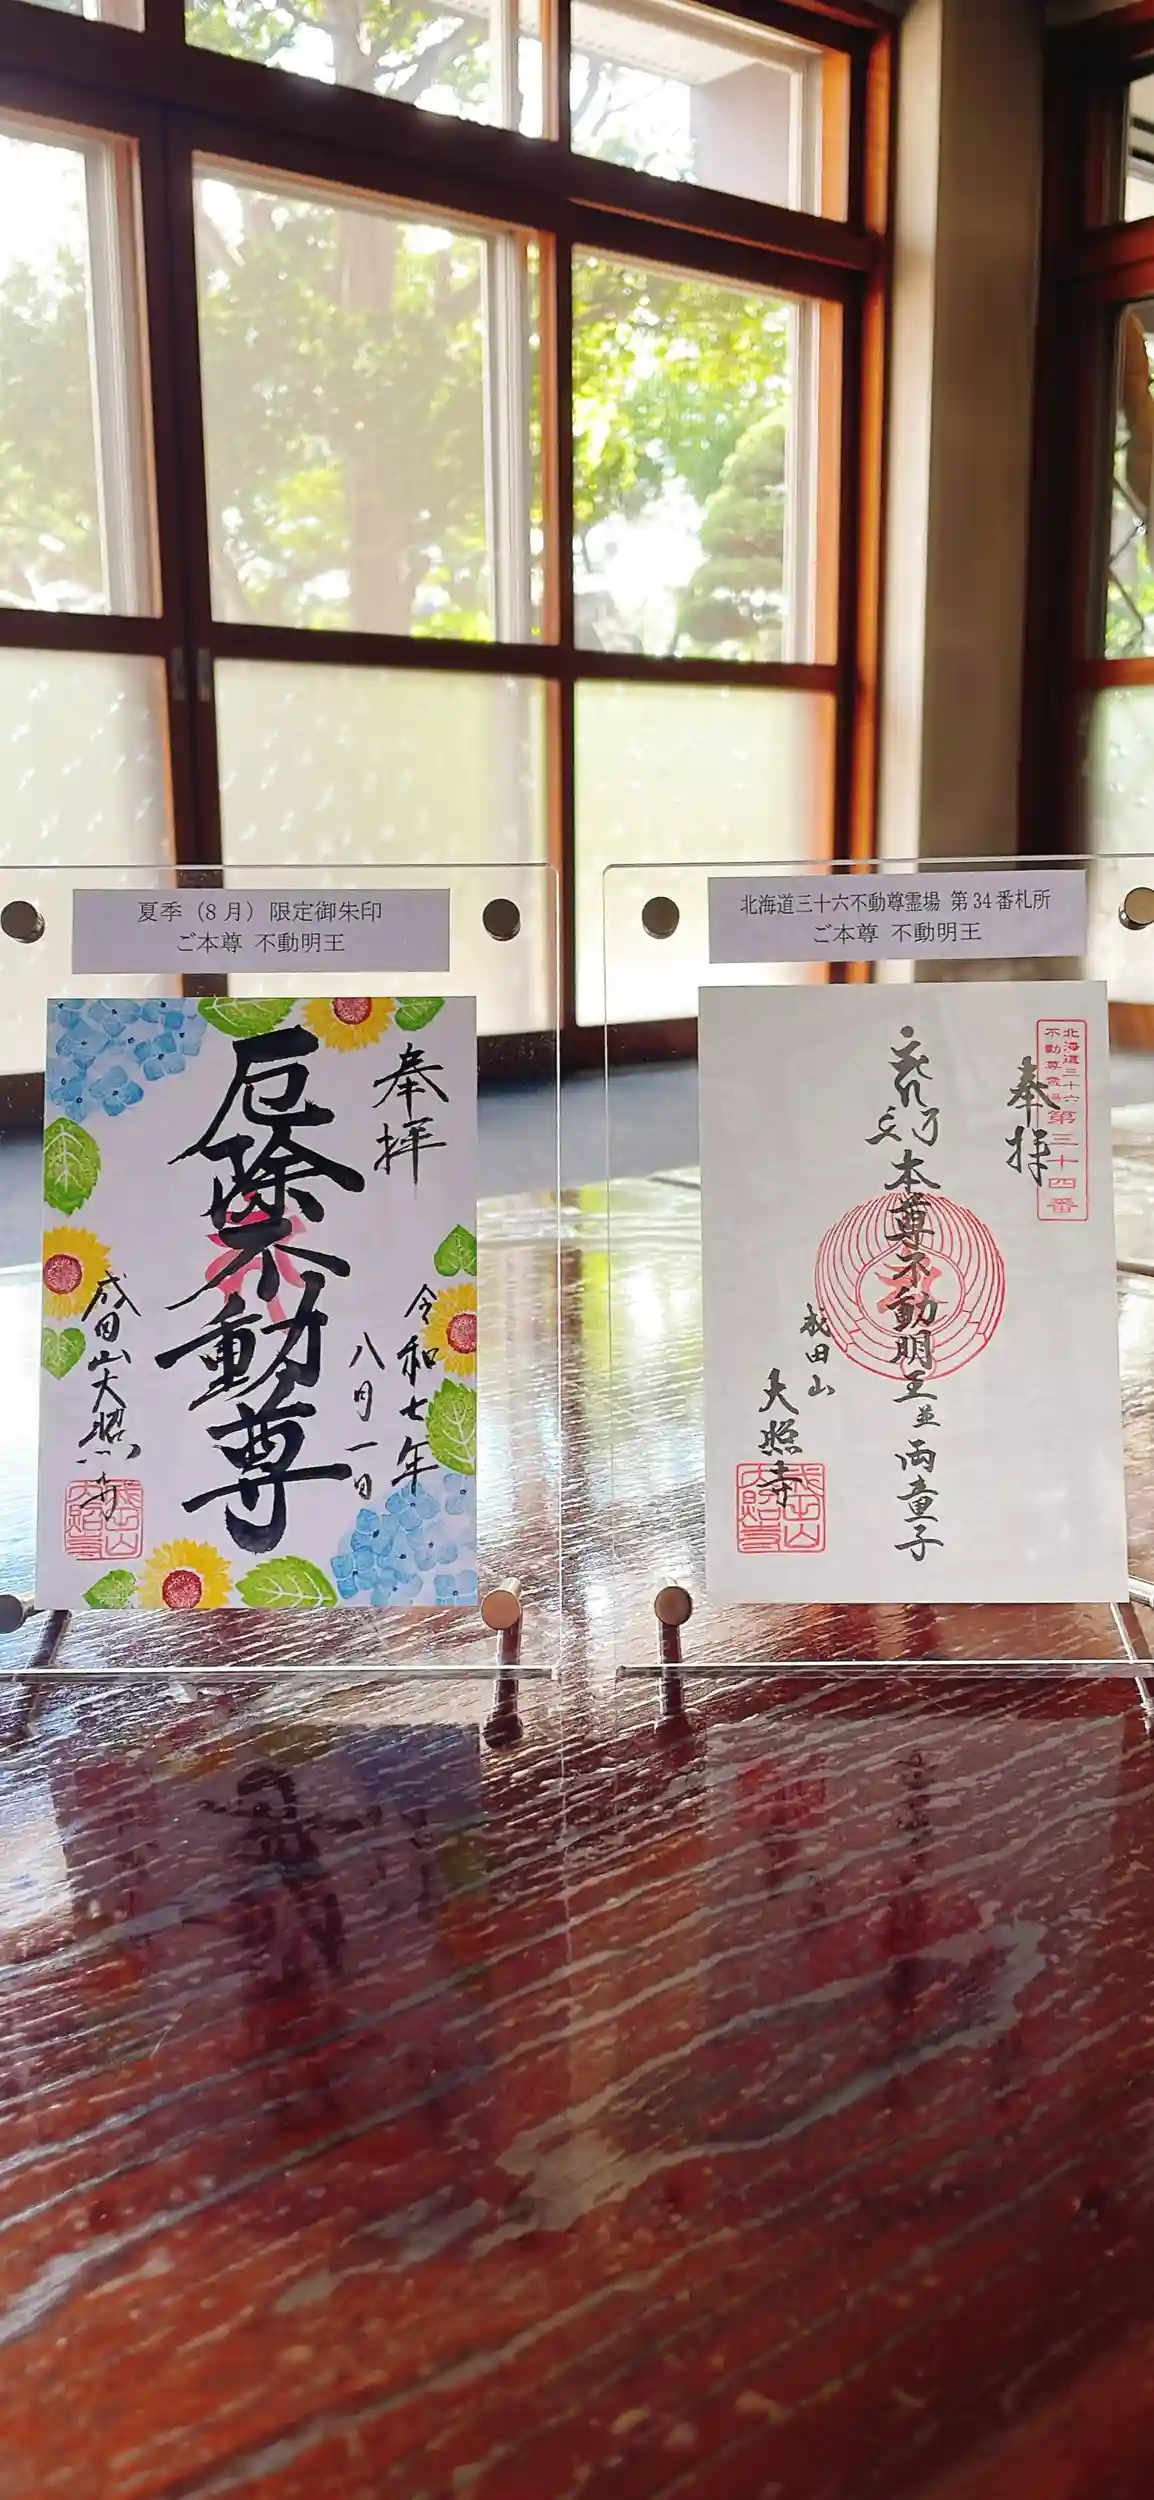 夏季（8月）限定御朱印
ご本尊 不動明王
奉拝
令和七年
八月一日
厄除不動尊
成田山大照寺
北海道三十六不動尊霊場 第34番札所
ご本尊 不動明王
北海道三十六
不動尊霊場
第三十四番
奉拝
本尊不動明王並両童子
成田山
大照寺